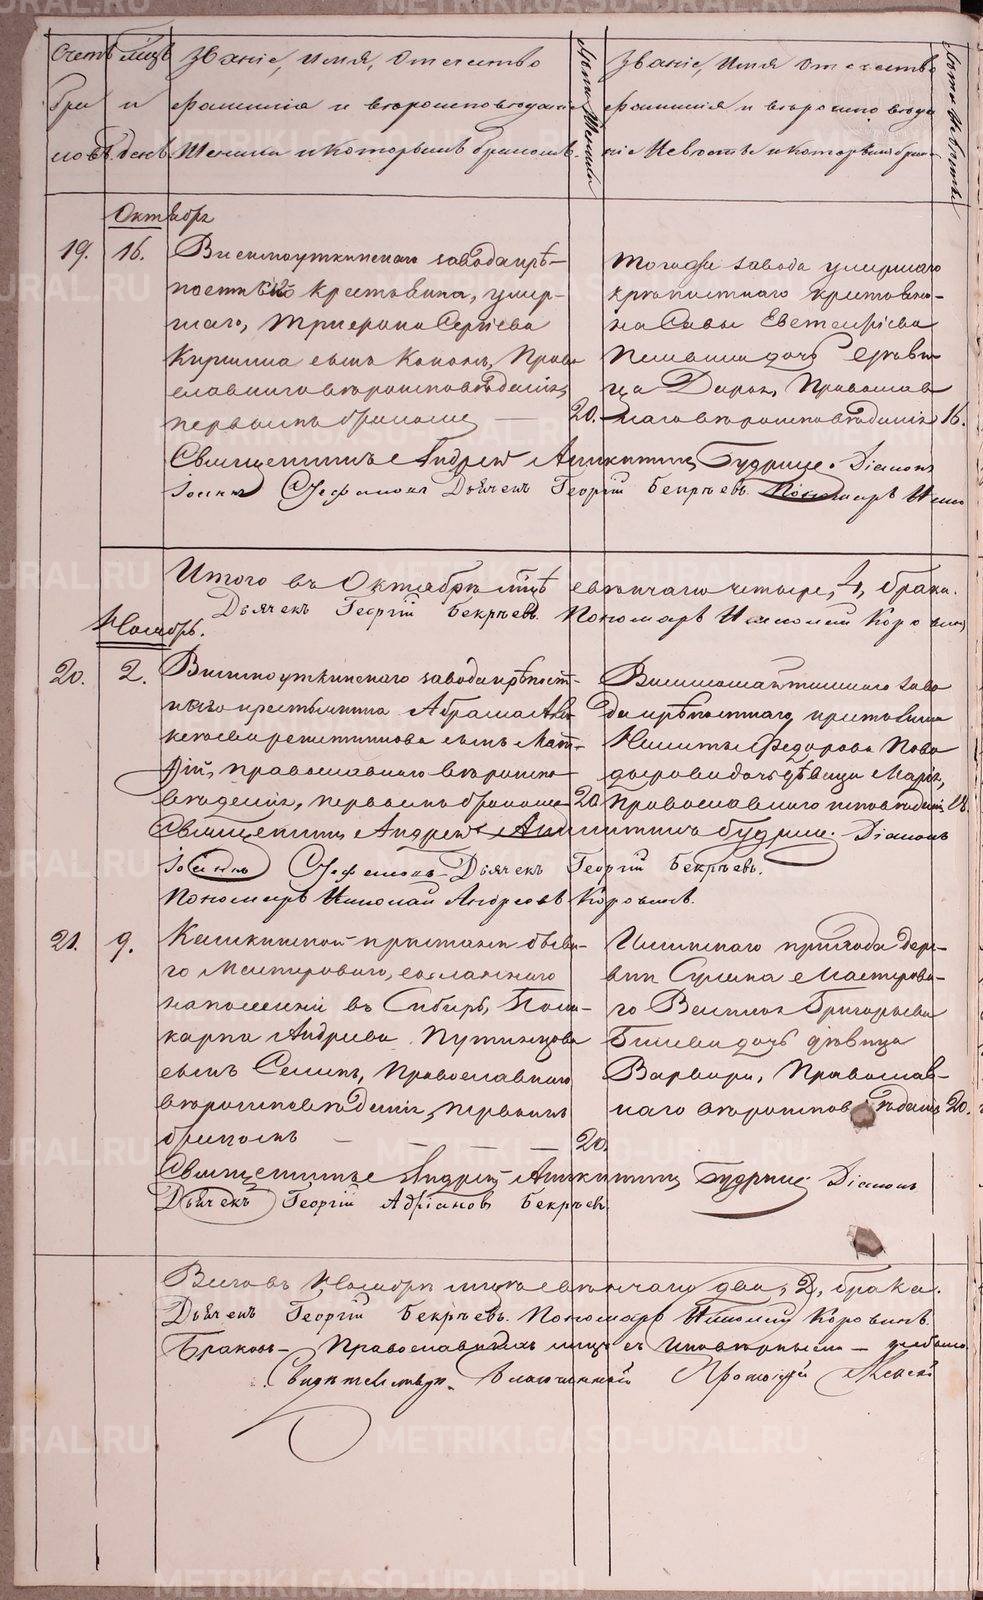 Счетъ Мцъ Званіе, имя, отечество Лета Жениха Званіе, имя отечество Лета Невесты
бра и фамилія и вероисповеданіе фамилія и вероисповеда
ковъ. день. Жениха и которымъ бракомъ. ніе Невесты и которымъ брак
Октябрь
19. 16. Висимоуткинскаго завода крѣ-
постнаго крестьянина, умер-
шаго, Трифона Сергіева
сынъ Кононъ, Право
славнаго вѣроисповѣданія,
первымъ бракомъ — 20.
тогоже завода умершаго
крѣпостнаго крестьяни-
на Савы Евстафіева
дочь дѣви
ца Дарья, Православ
наго вѣроисповѣданія 16.
Священникъ Андрей Аникитинъ Будринъ. Діаконъ
Іоаннъ Стефановъ Дьячекъ Георгій Бекрѣевъ. Пономарь Нико
Итого въ Октябрѣ мцѣ свѣнчано четыре, 4, брака.
Дьячекъ Георгій Бекрѣевъ. Пономарь Николай Коровинъ
Ноябрь.
20. 2. Висимоуткинскаго завода крѣпост-
наго крестьянина Абрама
сынъ Мат-
ѳій, православнаго вѣроиспо-
вѣданія, первымъ бракомъ 20
Висимошайтанскаго заво
да крѣпостнаго крестьянина
Никиты Федорова
дочь дѣвица Марія,
Православнаго исповѣданія 18.
Священникъ Андрей Аникитинъ Будринъ. Діаконъ
Іоаннъ Стефановъ Дьячекъ Георгій Бекрѣевъ.
Пономарь Николай Андреевъ Коровинъ.
21. 9. Кашкинской пристани бывша-
го Мастероваго, сосланнаго
на поселеніе въ Сибирь, Поли-
карпа Андреева Путинцова
сынъ Семенъ, Православнаго
вѣроисповѣданія, первымъ
бракомъ — — — — 20.
Илимскаго прихода дере-
вни Сулема Мастерова-
го Василья Григорьева
дочь дѣвица
Варвара, Православ-
наго вѣроисповѣданія 20.
Священникъ Андрей Аникитинъ Будринъ. Діаконъ
Дьячекъ Георгій Адріановъ Бекрѣевъ
Всего въ Ноябрѣ мцѣ свѣнчано два, 2, брака.
Дьячекъ Георгій Бекрѣевъ. Пономарь Николай Коровинъ.
Браковъ — Православныхъ лицъ съ иновѣрными — небыло
Свидѣтельств. Благочинный Протоіерей
METRIKI.GASO-URAL.RU